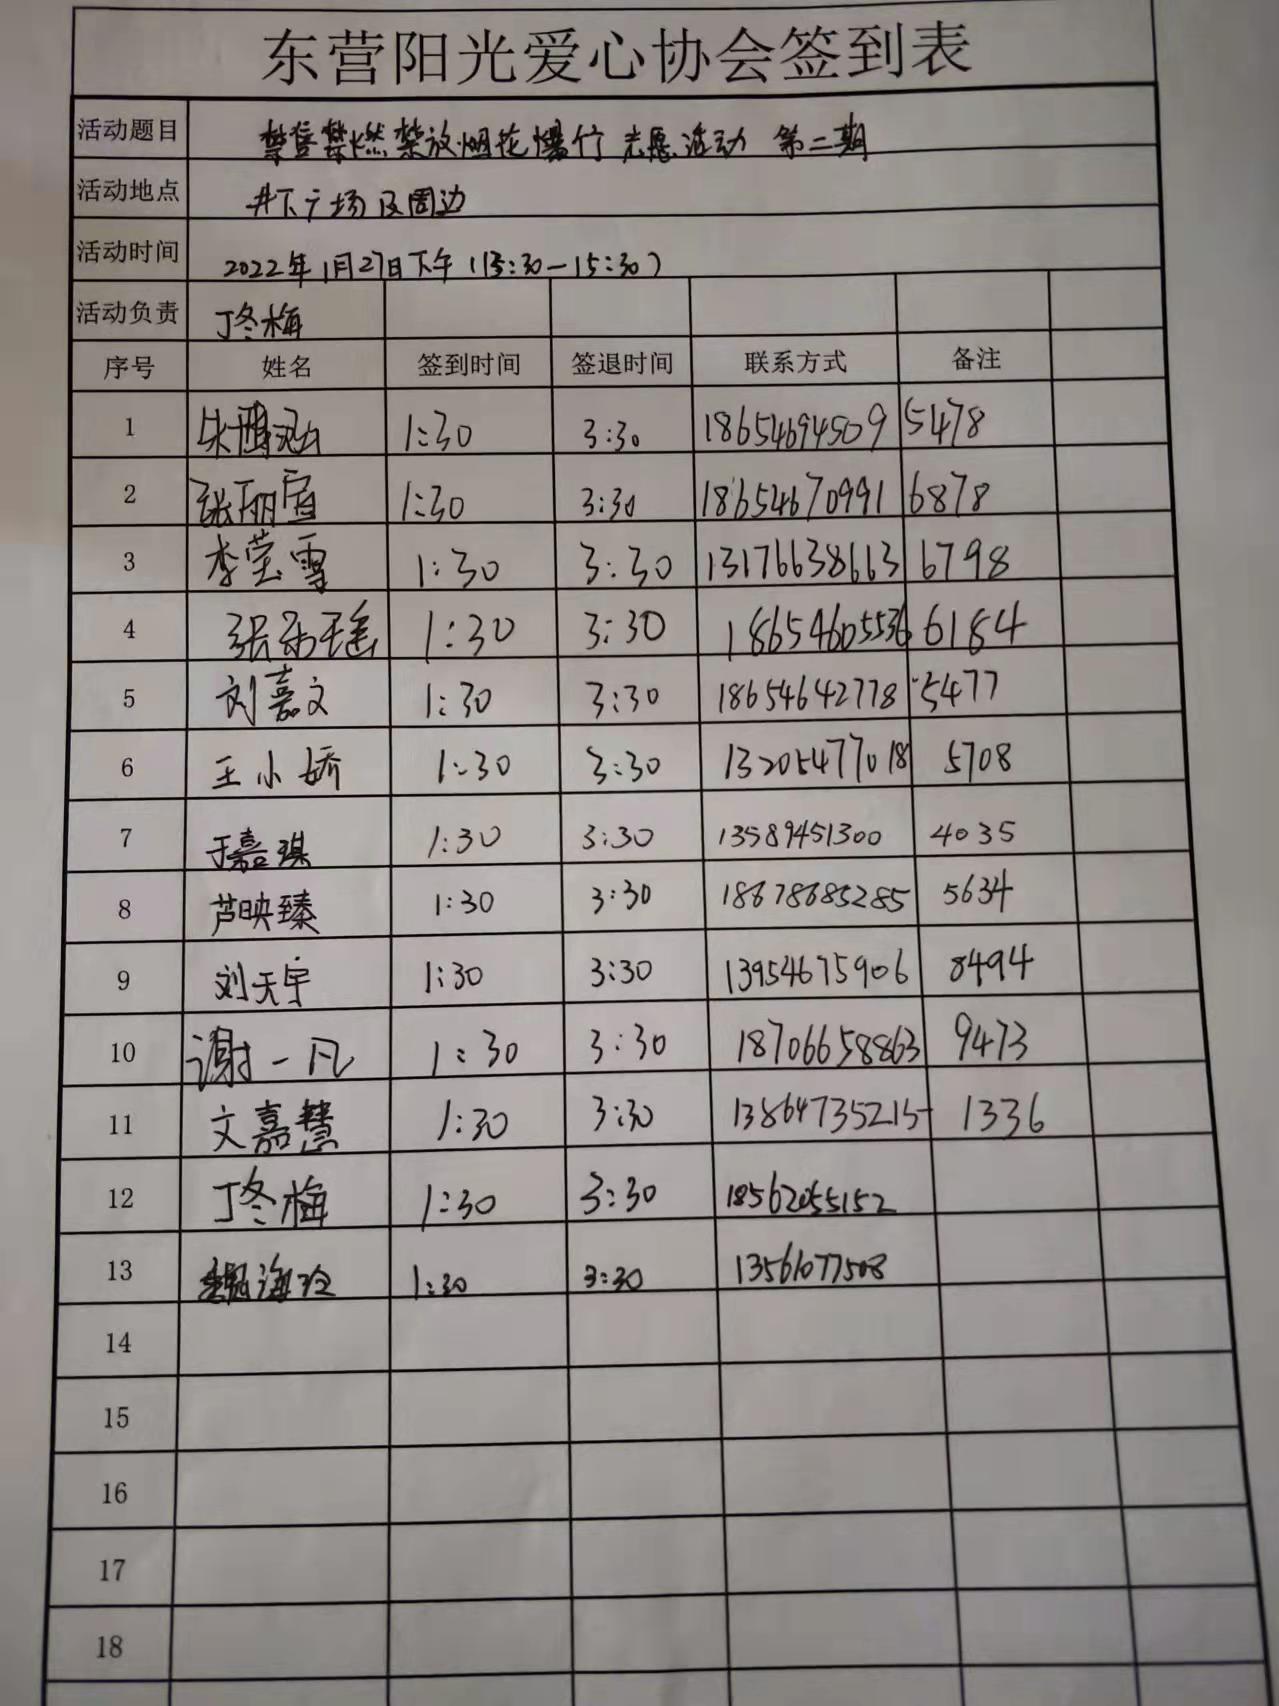 东营阳光爱心协会签到表
活动题目 禁售禁燃禁放烟花爆竹志愿活动 第二期
活动地点 井下广场及周边
活动时间 2022年1月27日下午(13:30-15:30)
活动负责 丁冬梅
序号 姓名 签到时间 签退时间 联系方式 备注
1 1:30 3:30 18654694509 5478
2 张丽宣 1:30 3:30 18654670991 6878
3 李莹雪 1:30 3:30 13176638663 6798
4 1:30 3:30 18654605536 6184
5 刘嘉文 1:30 3:30 18654642778 5477
6 王小娇 1:30 3:30 13205477018 5708
7 于嘉琪 1:30 3:30 13589451300 4035
8 芦映臻 1:30 3:30 18678685285 5634
9 刘天宇 1:30 3:30 13954675906 8494
10 谢一凡 1:30 3:30 18706658863 9473
11 文嘉慧 1:30 3:30 13864735215 1336
12 丁冬梅 1:30 3:30 18562055152
13 魏海玲 1:30 3:30 13561077508
14
15
16
17
18